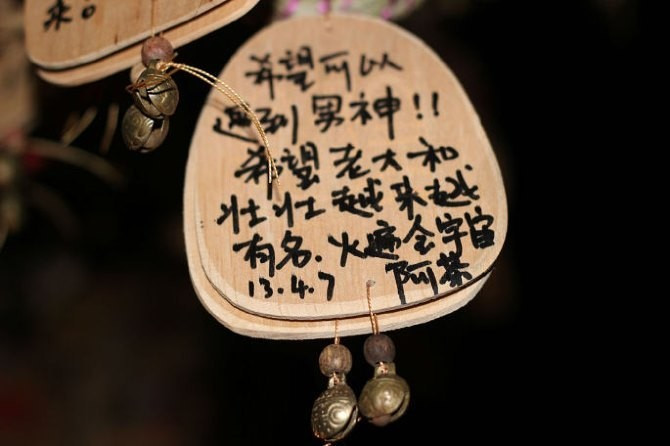 来。
希望可以
遇到男神!!
希望老大和
壮壮越来越
有名.火遍全宇宙
13.4.7 阿茶